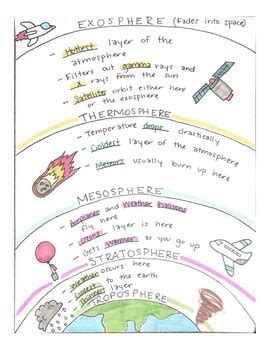 EXOSPHERE (Fades into space)
- Hottest layer of the
atmosphere
- Filters out gamma rays and
x rays from the sun
- Satellite orbit either here
or the exosphere
THERMOSPHERE
- Temperature drops drastically
- Coldest layer of the atmosphere
- Meteors usually burn up here
MESOSPHERE
- Airplanes and Weather balloons
fly here
- Ozone layer is here
- Gets Warmer as you go up
STRATOSPHERE
- Weather occurs here
- Closest to the earth
- Thinnest layer
TROPOSPHERE